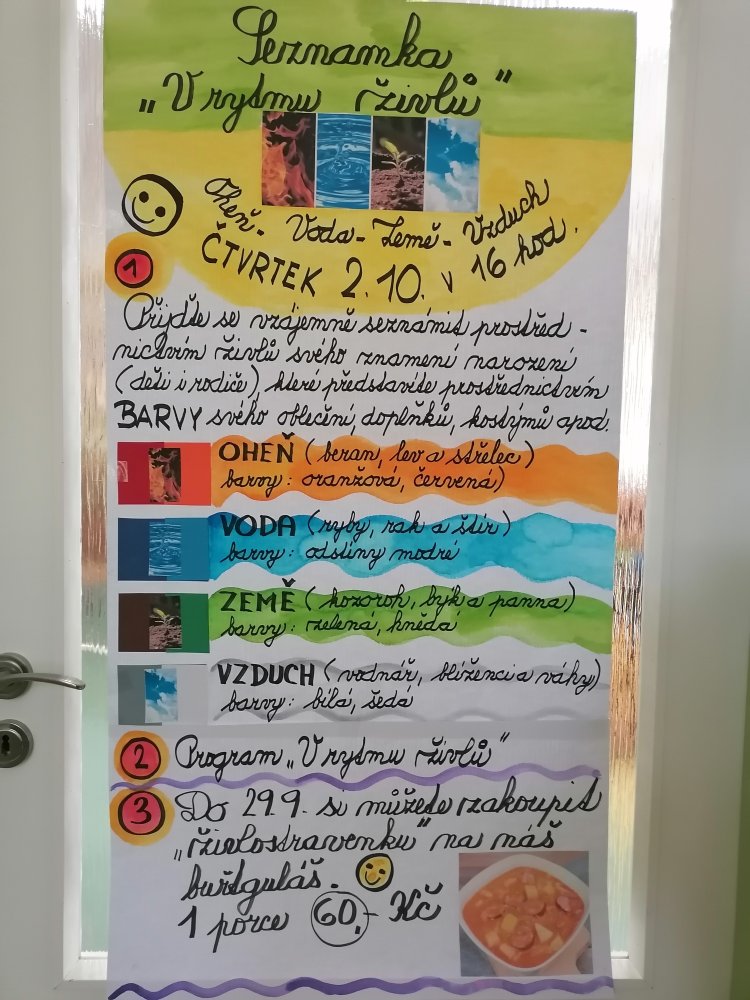 Seznamka
„V rytmu živlů"
Oheň - Voda - Země - Vzduch
ČTVRTEK 2.10. v 16 hod.
1
Přijďte se vzájemně seznámit prostřed -
nictvím živlů svého znamení narození
(děti i rodiče), které představíte prostřednictvím
BARVY svého oblečení, doplňků, kostýmů apod.
OHEŇ (beran, lev a střelec)
barvy: oranžová, červená)
VODA (ryby, rak a štír)
barvy: odstíny modré
ZEMĚ (kozoroh, býk a panna)
barvy: zelená, hnědá
VZDUCH (vodnář, blíženci a váhy)
barvy: bílá, šedá
2 Program „V rytmu živlů"
3 Do 29.9. si můžete zakoupit
„živlostravenku" na náš
buřtguláš.
1 porce 60,- Kč